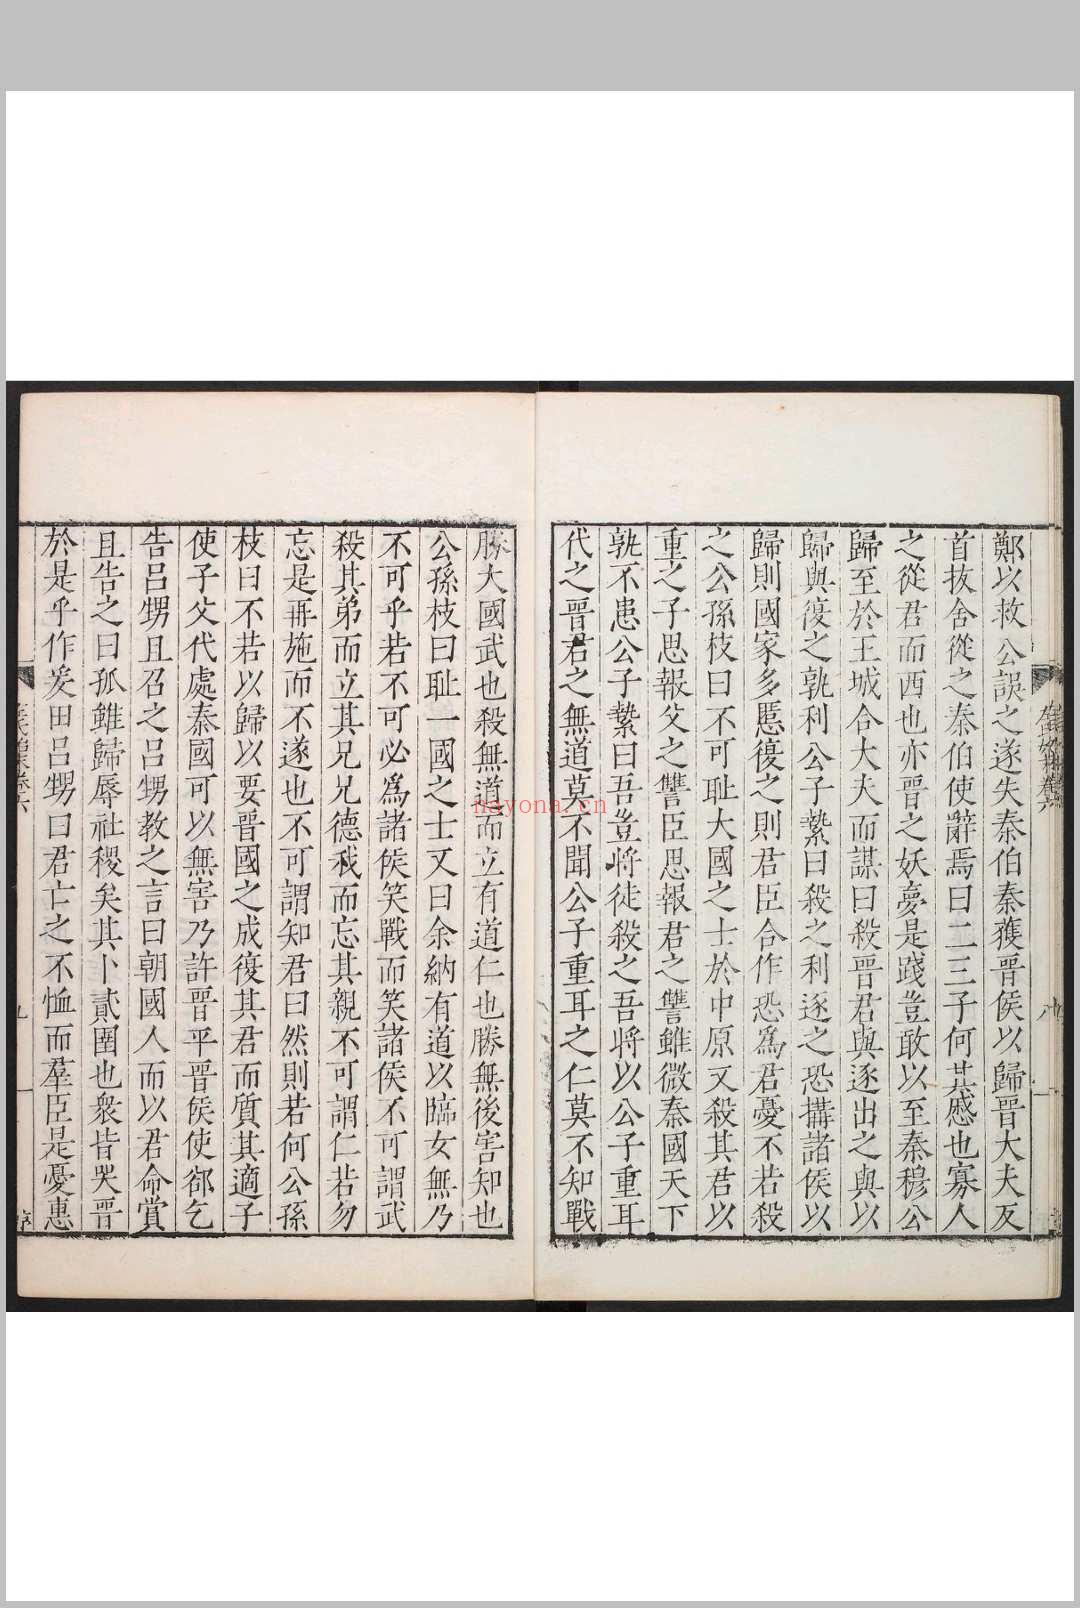 鄭以救公誤之遂失秦伯秦獲晉侯以歸晉大夫反
首拔舍從之秦伯使辭焉曰二三子何其慼也寡人
之從君而西也亦晉之妖夢是踐豈敢以至秦穆公
歸至於王城合大夫而謀曰殺晉君與逐出之與以
歸與復之孰利公子縶曰殺之利逐之恐搆諸侯以
歸則國家多慝復之則君臣合作恐為君憂不若殺
之公孫枝曰不可恥大國之士於中原又殺其君以
重之子思報父之讐臣思報君之讐雖微秦國天下
孰不患公子縶曰吾豈將徒殺之吾將以公子重耳
代之晉君之無道莫不聞公子重耳之仁莫不知戰
勝大國武也殺無道而立有道仁也勝無後害知也
公孫枝曰恥一國之士又曰余納有道以臨女無乃
不可乎若不可必為諸侯笑戰而笑諸侯不可謂武
殺其弟而立其兄兄德我而忘其親不可謂仁若勿
忘是再施而不遂也不可謂知君曰然則若何公孫
枝曰不若以歸以要晉國之成復其君而質其適子
使子父代處秦國可以無害乃許晉平晉侯使郤乞
告呂甥且召之呂甥教之言曰朝國人而以君命賞
且告之曰孤雖歸辱社稷矣其卜貳圉也衆皆哭晉
於是乎作爰田呂甥曰君亡之不恤而羣臣是憂惠
nayona.cn